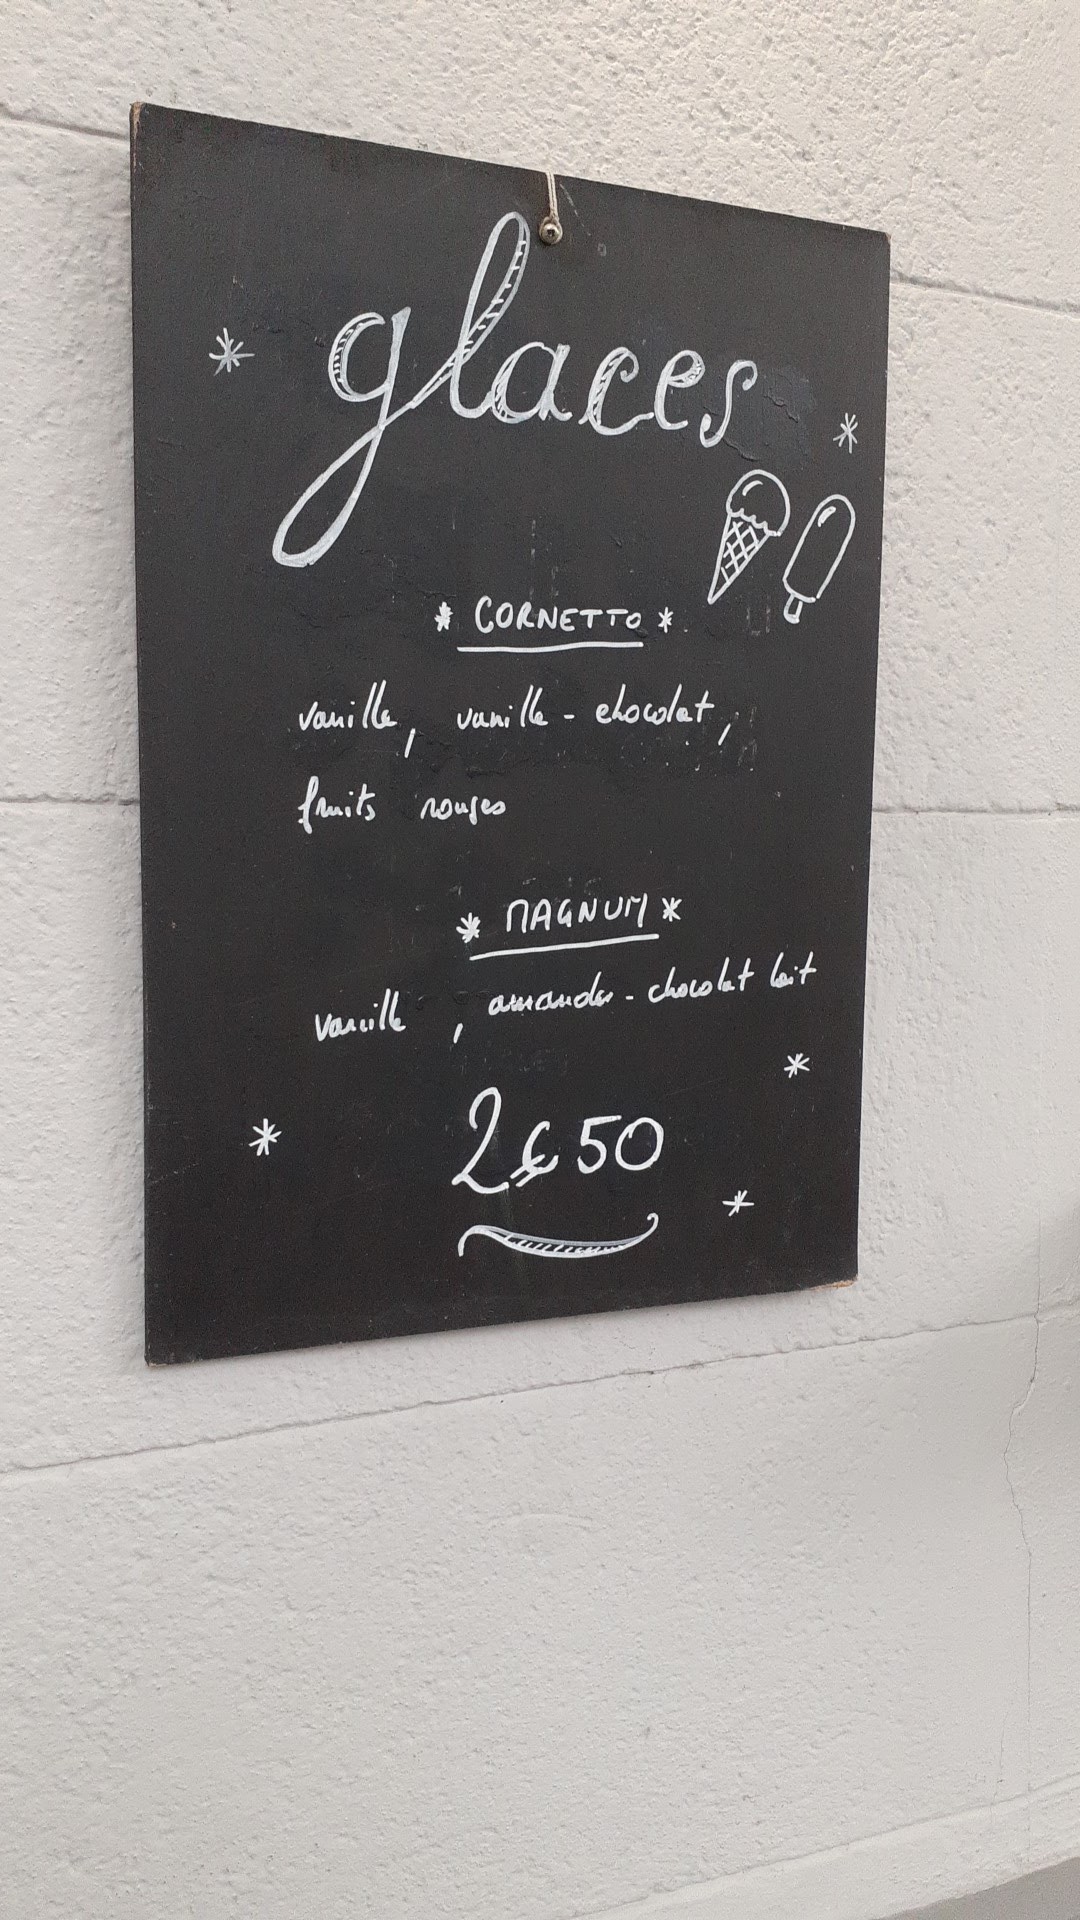 glaces
* CORNETTO *
vanille, vanille - chocolat,
fruits rouges
* MAGNUM *
vanille, amandes - chocolat lait
2€50